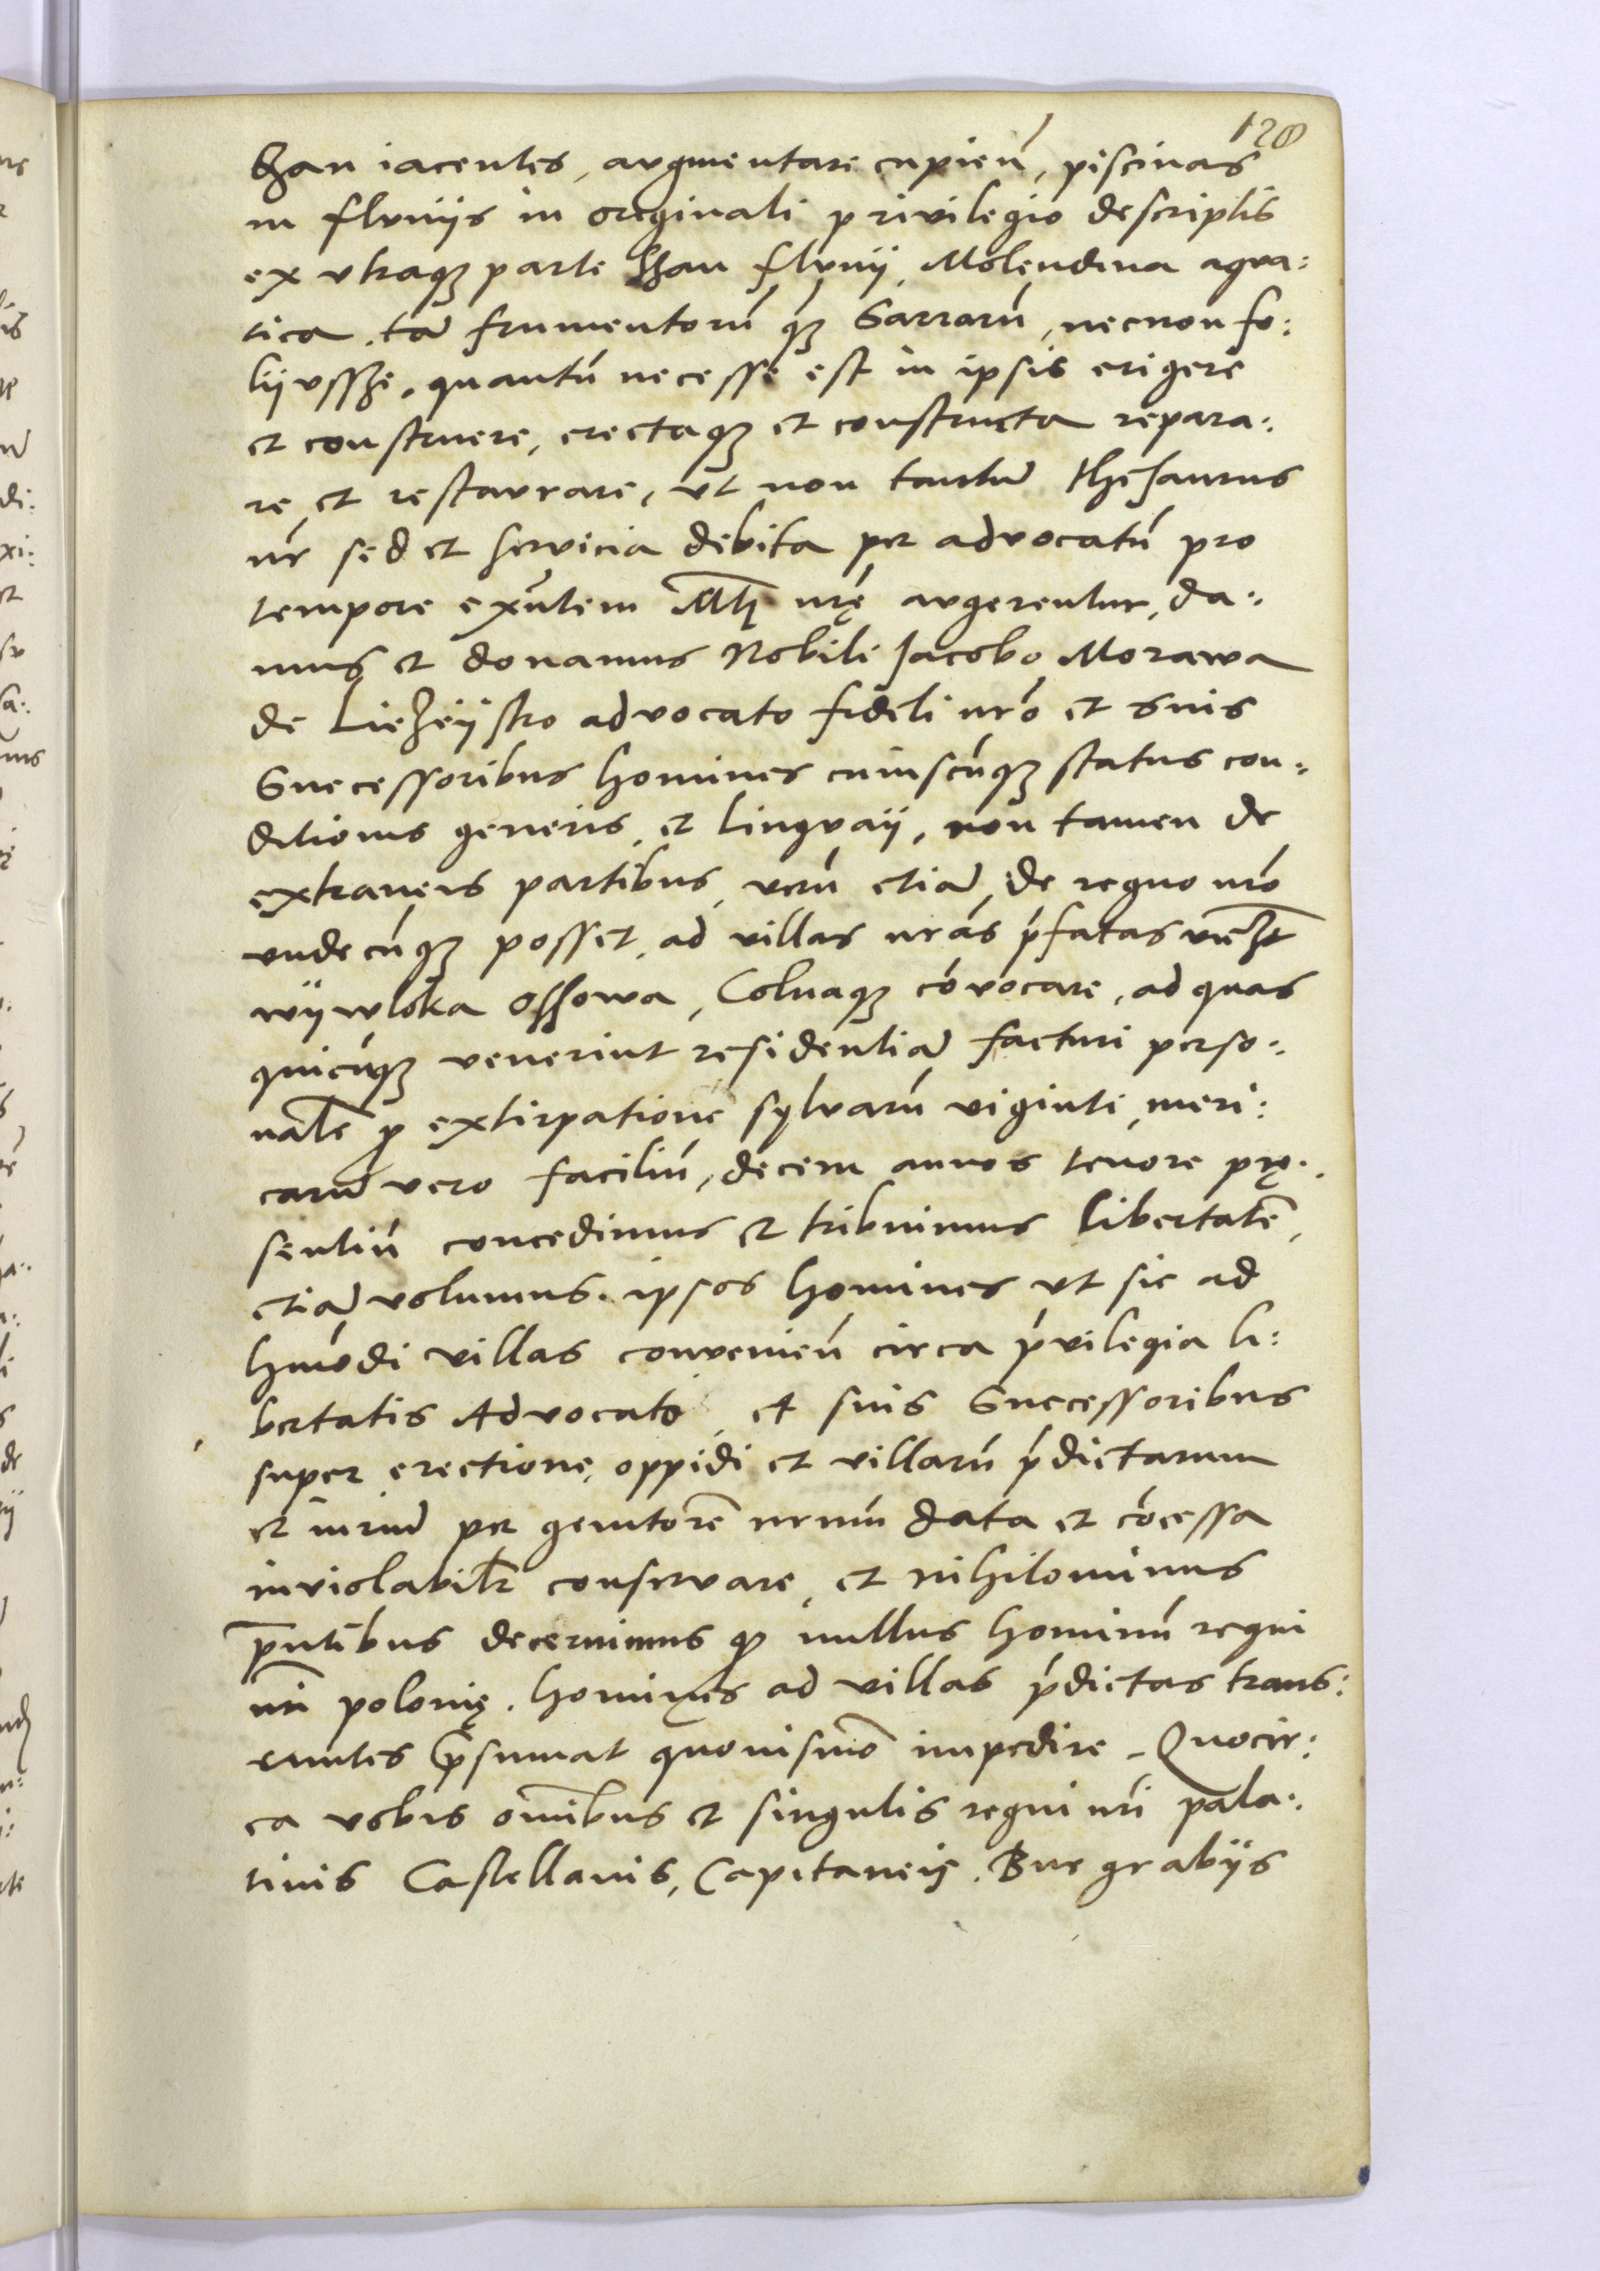 120
Szan iacentes, augmentare cupień, piscinas
in fluviis in originali privilegio descriptis
ex utraqz parte Szan fluvij, Molendina aqua:
tica, tā frumentorū qz Sarrarū, necnon fo:
lijussze, quantū necesse est in ipsis erigere
et construere, erectaqz et constructa repara:
re et restaurare, ut non tantū thesaurus
nr̄ sed et servicia debita per advocatū pro
tempore exn̄tem Mti nrę augerentur, da:
mus et donamus Nobili Jacobo Morawa
de Liezeijsko advocato fideli nrō et suis
Successoribus homines cuiuscūqz status con:
ditionis generis et linguaij, non tamen de
extraneis partibus, verū etiā de regno nrō
undecūqz posset, ad villas nrās pfatas vidzt
wijwloka Ossowa, Colnaqz cōvocare, ad quas
quicūqz venerint residentiā facturi perso:
nalē p extirpatione sylvarū viginti, meri:
carū vero faciliū, decem annos tenore prę:
sentiū concedimus et tribuimus libertatē,
etiā volumus ipsos homines ut sic ad
hmōdi villas convenień circa pvilegia li:
bertatis Advocato et suis Successoribus
super erectione oppidi et villarū pdictarum
et iuriū per genitorē nrum data et cōcessa
inviolabilr conservare, et nihilominus
pn̄tibus decernimus qp nullus hominū regni
nri polonię, homines ad villas pdictas trans:
euntes psumat quovismō impedire. Quocir:
ca vobis omībus et singulis regni nri pala:
tinis Castellanis, Capitaneis, Burgrabijs